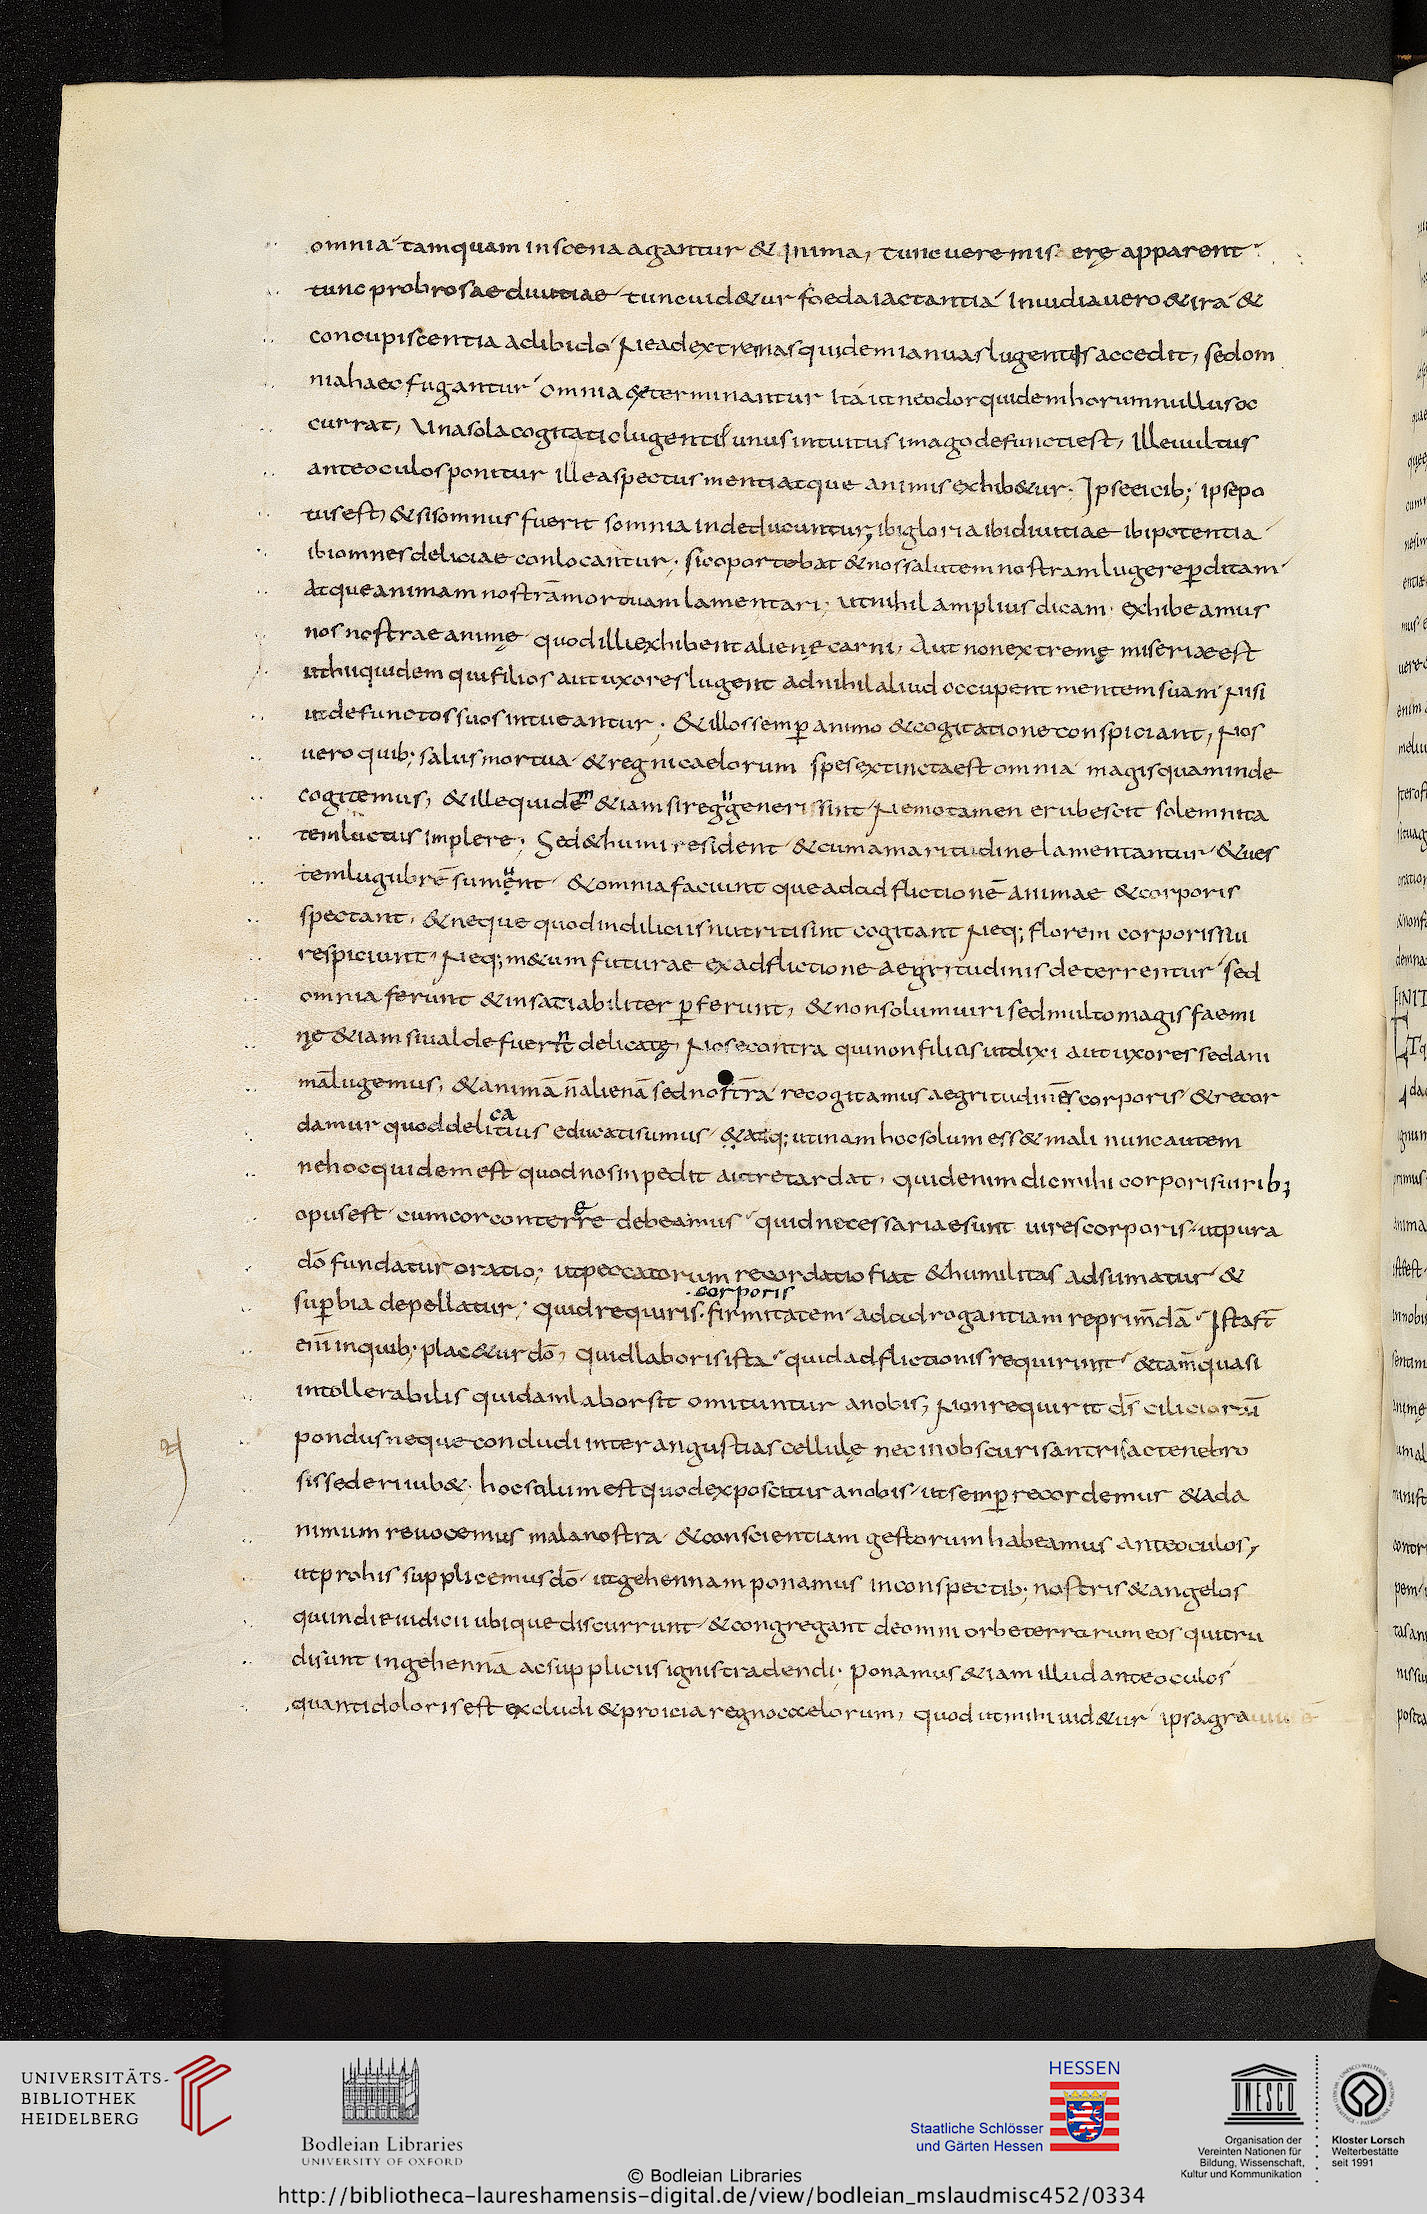 omnia tamquam in scena agantur & mima, tunc uere mis erę apparent
tunc probrosae diuitiae tunc uid&ur foeda iactantia Inuidia uero & ira &
concupiscentia ad libido Ne ad extremas quidem ianuas lugentis accedit, sed om
nia haec fugantur omnia &terminantur Ita ut ne odor quidem horum nullus oc
currat, Una sola cogitatio lugentis unus intuitus imago defuncti est, Ille uultus
ante oculos ponitur ille aspectus menti atque animis exhib&ur. Ipse ei cib; ipse po
tus est, & si somnus fuerit somnia inde ducuntur; ibi gloria ibi diuitiae ibi potentia
ibi omnes deliciae conlocantur; sic oportebat & nos salutem nostram lugere p̄ditam
Atque animam nostrā mortuam lamentari; ut nihil amplius dicam. exhibeamus
nos nostrae animę quod illi exhibent alienę carni, Aut non extremę miseriae est
ut hii quidem qui filios aut uxores lugent ad nihil aliud occupent mentem suam Nisi
ut defunctos suos intueantur; & illos semp̄ animo & cogitatione conspiciant, Nos
uero quib; salus mortua & regni caelorum spes extincta est omnia magis quam inde
cogitemus, & ille quidēm &iam si regii generis sint Nemo tamen erubescit solemnita
tem luctus implere; Sed & humi resident & cum amaritudine lamentantur & ues
tem lugubrē sumunt & omnia faciunt que ad adflictionē animae & corporis
spectant, & neque quod in diliciis nutriti sint cogitant Neq; florem corporis sui
respiciunt Neq; m&um futurae ex adflictione aegritudinis deterrentur sed
omnia ferunt & insatiabiliter p̄ferunt, & non solum uiri sed multo magis faemi
nę &iam si ualde fuerint delicatę Nos e contra qui non filios ut dixi aut uxores sed ani
mā lugemus, & animā n̄ alienā sed nostrā recogitamus aegritudinēs corporis & recor
damur quod delicatius educati sumus & atq; utinam hoc solum ess& mali nunc autem
ne hoc quidem est quod nos inpedit aut retardat, quid enim dic mihi corporis uirib;
opus est cum cor conterere debeamus quid necessariae sunt uires corporis ut pura
dō fundatur oratio; ut peccatorum recordatio fiat & humilitas adsumatur &
sup̄bia depellatur; quid requiris corporis firmitatem ad adrogantiam reprim̄dā Ista st̄
eni̅ in quib; plac&ur dō, quid laboris ista quid adflictionis requirunt & tam̄ quasi
intollerabilis quidam labor sit omituntur a nobis, Non requirit d̄s ciliciorū
pondus neque concludi inter angustias cellulę nec in obscuris antris ac tenebro
sis sederi iub&. hoc solum est quod exposcitur a nobis ut semp̄ recordemus & ad a
nimum reuocemus mala nostra & conscientiam gestorum habeamus ante oculos,
ut pro his supplicemus dō ut gehennam ponamus in conspectib; nostris & angelos
qui in die iudicii ubique discurrunt & congregant de omni orbe terrarum eos qui tra
di sunt in gehennā ac suppliciis ignis tradendi; ponamus &iam illud ante oculos
quanti doloris est excludi & proici a regno caelorum, quod ut mihi uid&ur ipsa
UNIVERSITÄTS-
BIBLIOTHEK
HEIDELBERG
Bodleian Libraries
UNIVERSITY OF OXFORD
HESSEN
Staatliche Schlösser
und Gärten Hessen
UNESCO
Organisation der
Vereinten Nationen für
Bildung, Wissenschaft,
Kultur und Kommunikation
Kloster Lorsch
Welterbestätte
seit 1991
© Bodleian Libraries
http://bibliotheca-laureshamensis-digital.de/view/bodleian_mslaudmisc452/0334